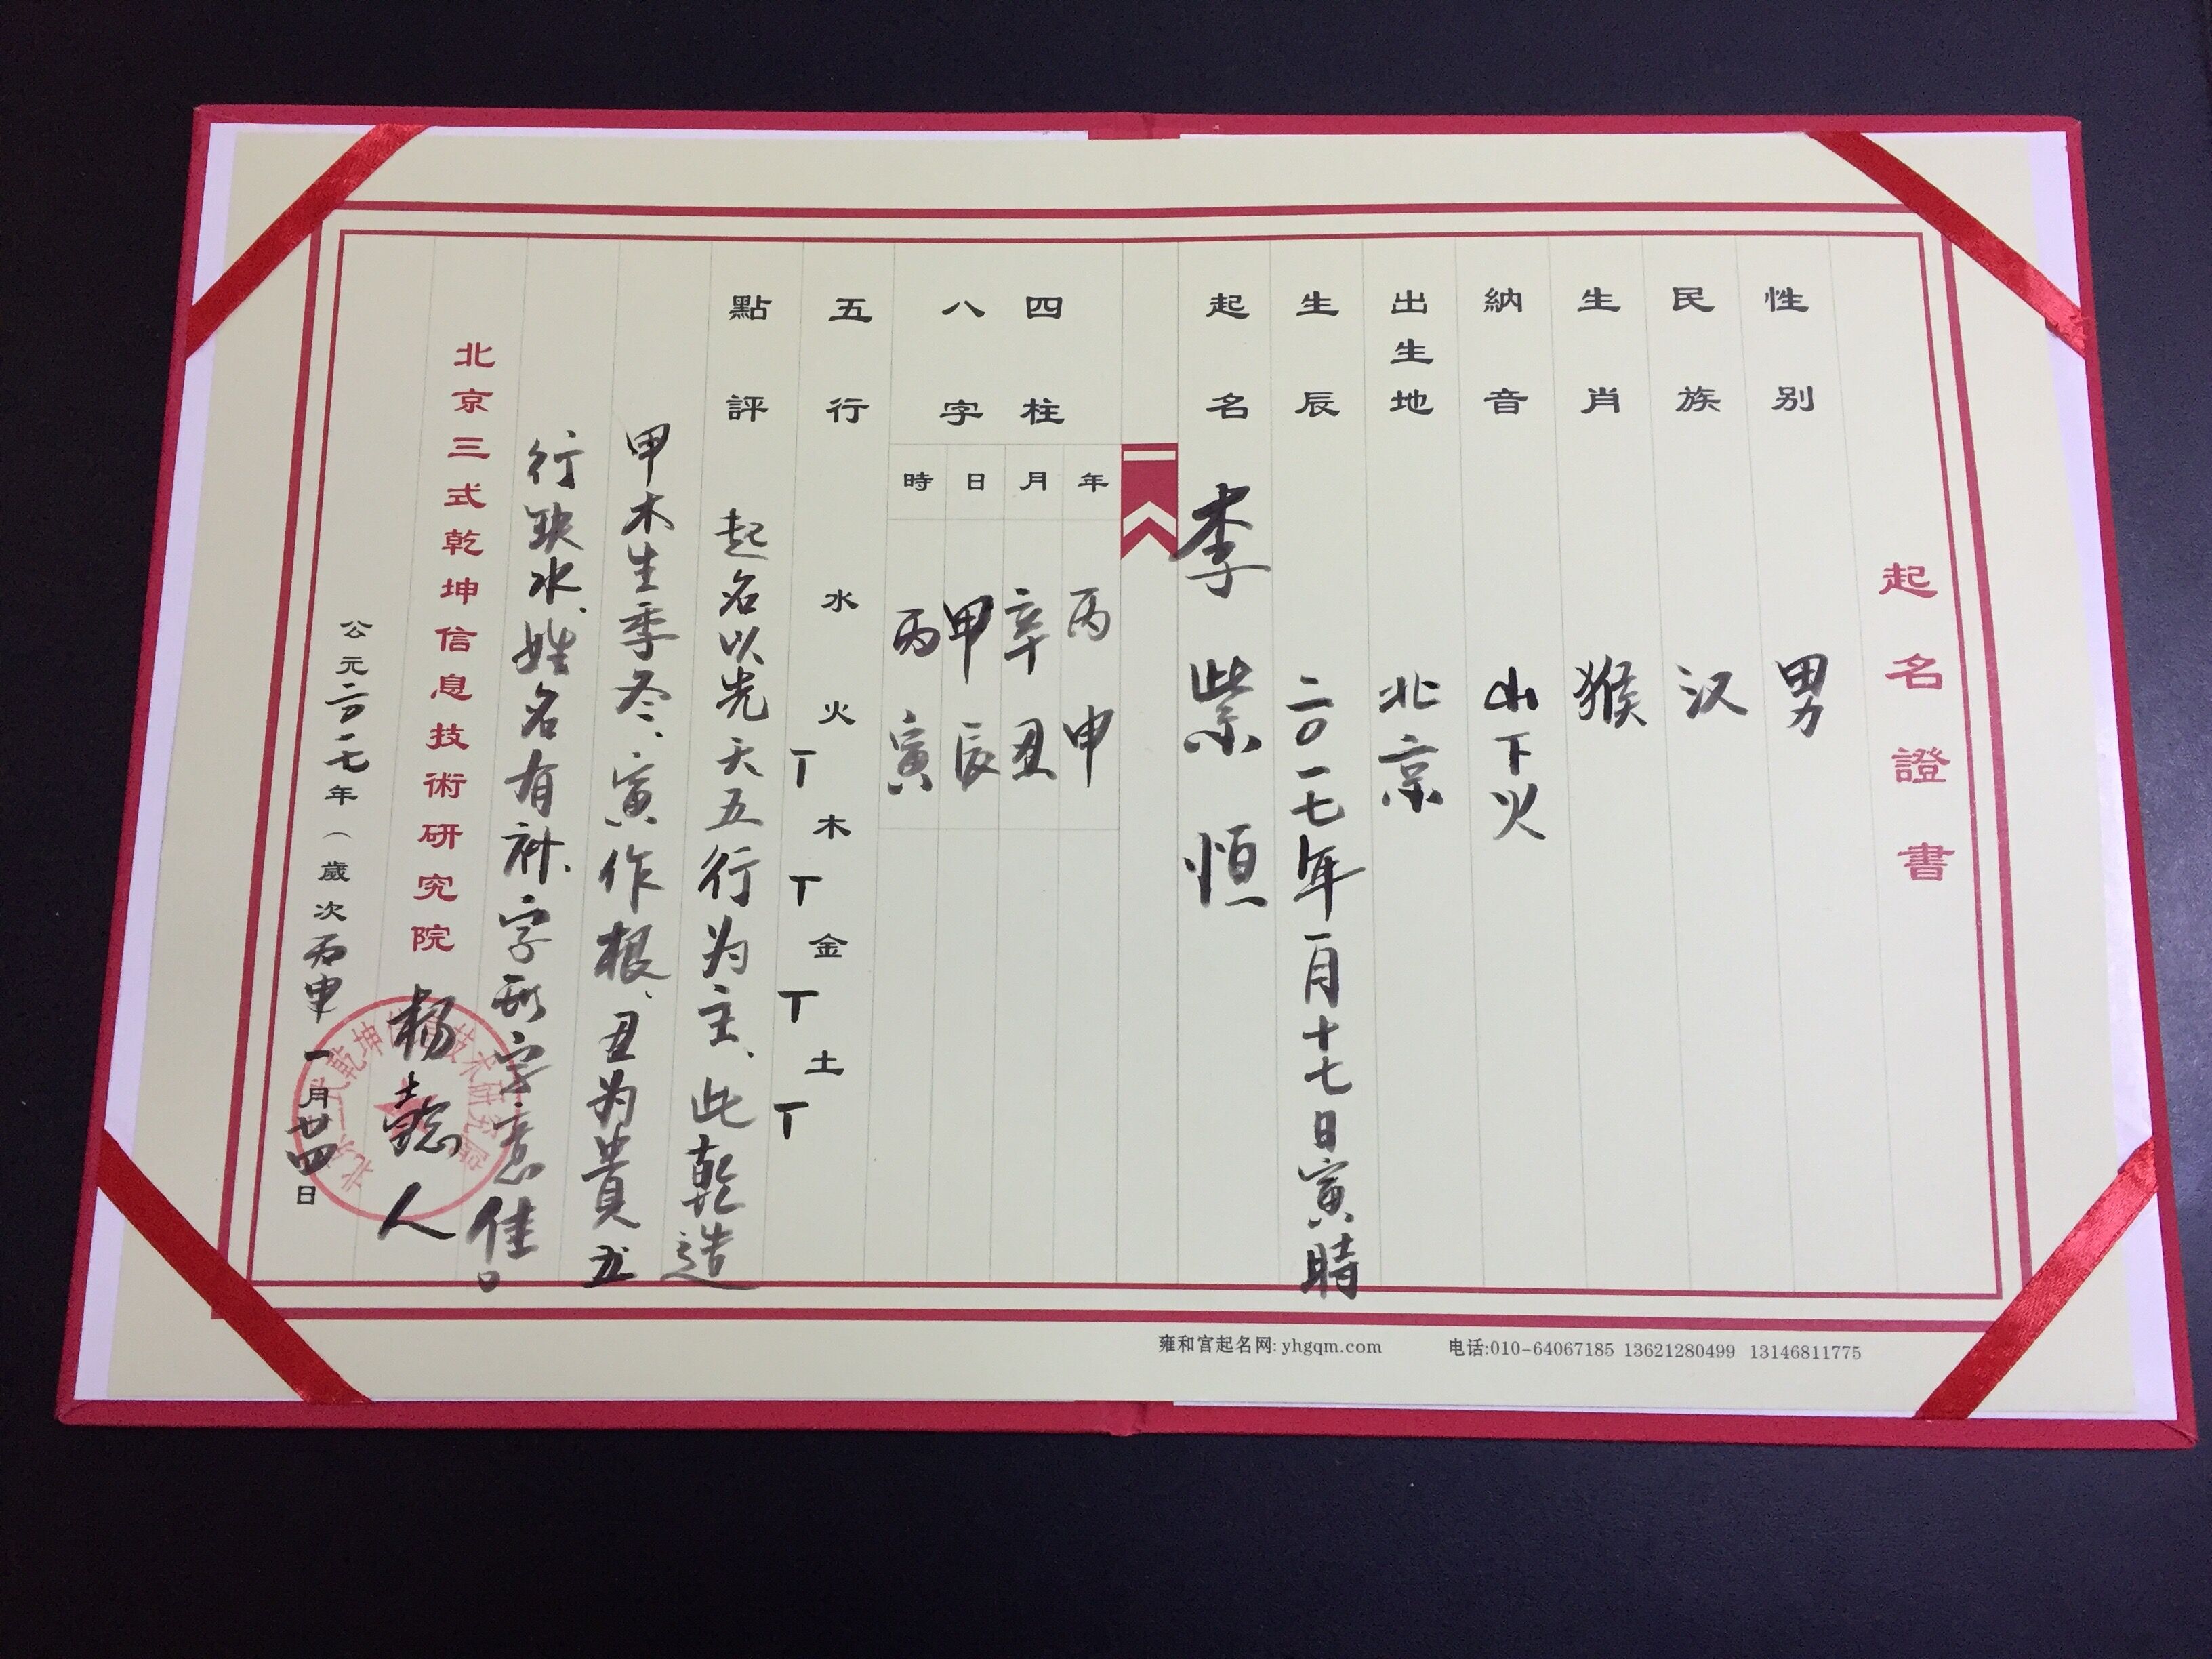 起名證書
性别 男
民族 汉
生肖 猴
納音 山下火
出生地 北京
生辰 二〇一七年一月十七日寅時
起名 李紫恒
四柱八字
年 丙申
月 辛丑
日 甲辰
時 丙寅
五行 水 火T 木T 金T 土T
點評 起名以先天五行为主、此乾造
甲木生季冬、寅作根、丑为貴五
行缺水、姓名有补、字形字意佳。
北京三式乾坤信息技術研究院 杨懿人
公元二〇一七年(歲次丙申一月廿四日
雍和宫起名网: yhgqm.com
电话:010-64067185 13621280499 13146811775